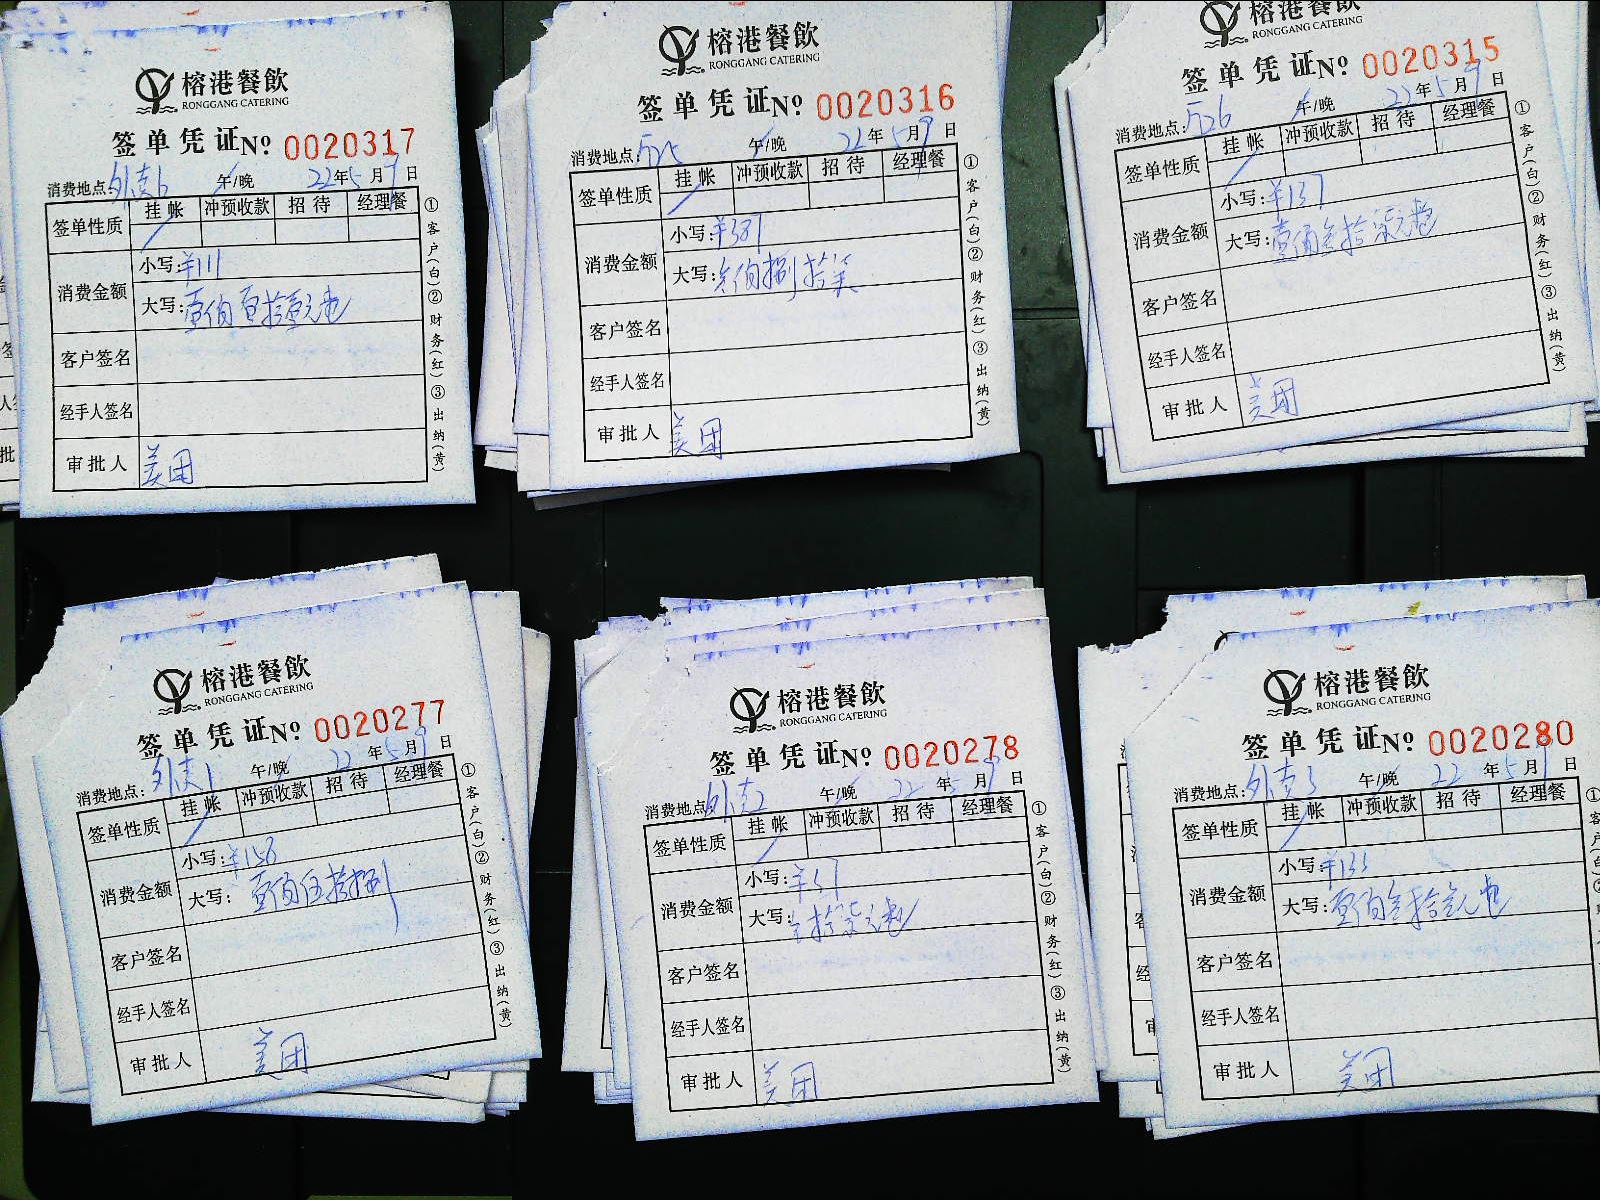 榕港餐飲
RONGGANG CATERING
签单凭证 Nº 0020317
消费地点: 外卖6 午/晚 22年5月9日
签单性质 挂帐 冲预收款 招待 经理餐
消费金额 小写:¥111
大写:壹佰壹拾壹元整
客户签名
经手人签名
审批人 美团
①客户(白)②财务(红)③出纳(黄)
榕港餐飲
RONGGANG CATERING
签单凭证 Nº 0020316
消费地点: 午/晚 22年5月9日
签单性质 挂帐 冲预收款 招待 经理餐
消费金额 小写:¥387
大写:叁佰捌拾柒
客户签名
经手人签名
审批人 美团
①客户(白)②财务(红)③出纳(黄)
榕港餐飲
RONGGANG CATERING
签单凭证 Nº 0020315
消费地点: 午/晚 22年5月9日
签单性质 挂帐 冲预收款 招待 经理餐
消费金额 小写:¥137
大写:壹佰叁拾柒元整
客户签名
经手人签名
审批人 美团
①客户(白)②财务(红)③出纳(黄)
榕港餐飲
RONGGANG CATERING
签单凭证 Nº 0020277
消费地点: 外卖1 午/晚 22年5月9日
签单性质 挂帐 冲预收款 招待 经理餐
消费金额 小写:¥158
大写:壹佰伍拾捌
客户签名
经手人签名
审批人 美团
①客户(白)②财务(红)③出纳(黄)
榕港餐飲
RONGGANG CATERING
签单凭证 Nº 0020278
消费地点: 外卖2 午/晚 22年5月9日
签单性质 挂帐 冲预收款 招待 经理餐
消费金额 小写:¥37
大写:叁拾柒元整
客户签名
经手人签名
审批人 美团
①客户(白)②财务(红)③出纳(黄)
榕港餐飲
RONGGANG CATERING
签单凭证 Nº 0020280
消费地点: 外卖3 午/晚 22年5月9日
签单性质 挂帐 冲预收款 招待 经理餐
消费金额 小写:¥133
大写:壹佰叁拾叁元整
客户签名
经手人签名
审批人 美团